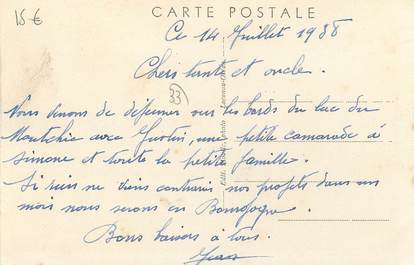 15€
CARTE POSTALE
Ce 14 Juillet 1938
Chers tante et oncle.
33
Nous venons de déjeuner sur les bords du lac du
Moutchic avec Gaston, une petite camarade à
Simone et toute la petite famille.
Si rien ne viens contrarié nos projets dans un
mois nous serons en Bourgogne.
Bons baisers à tous.